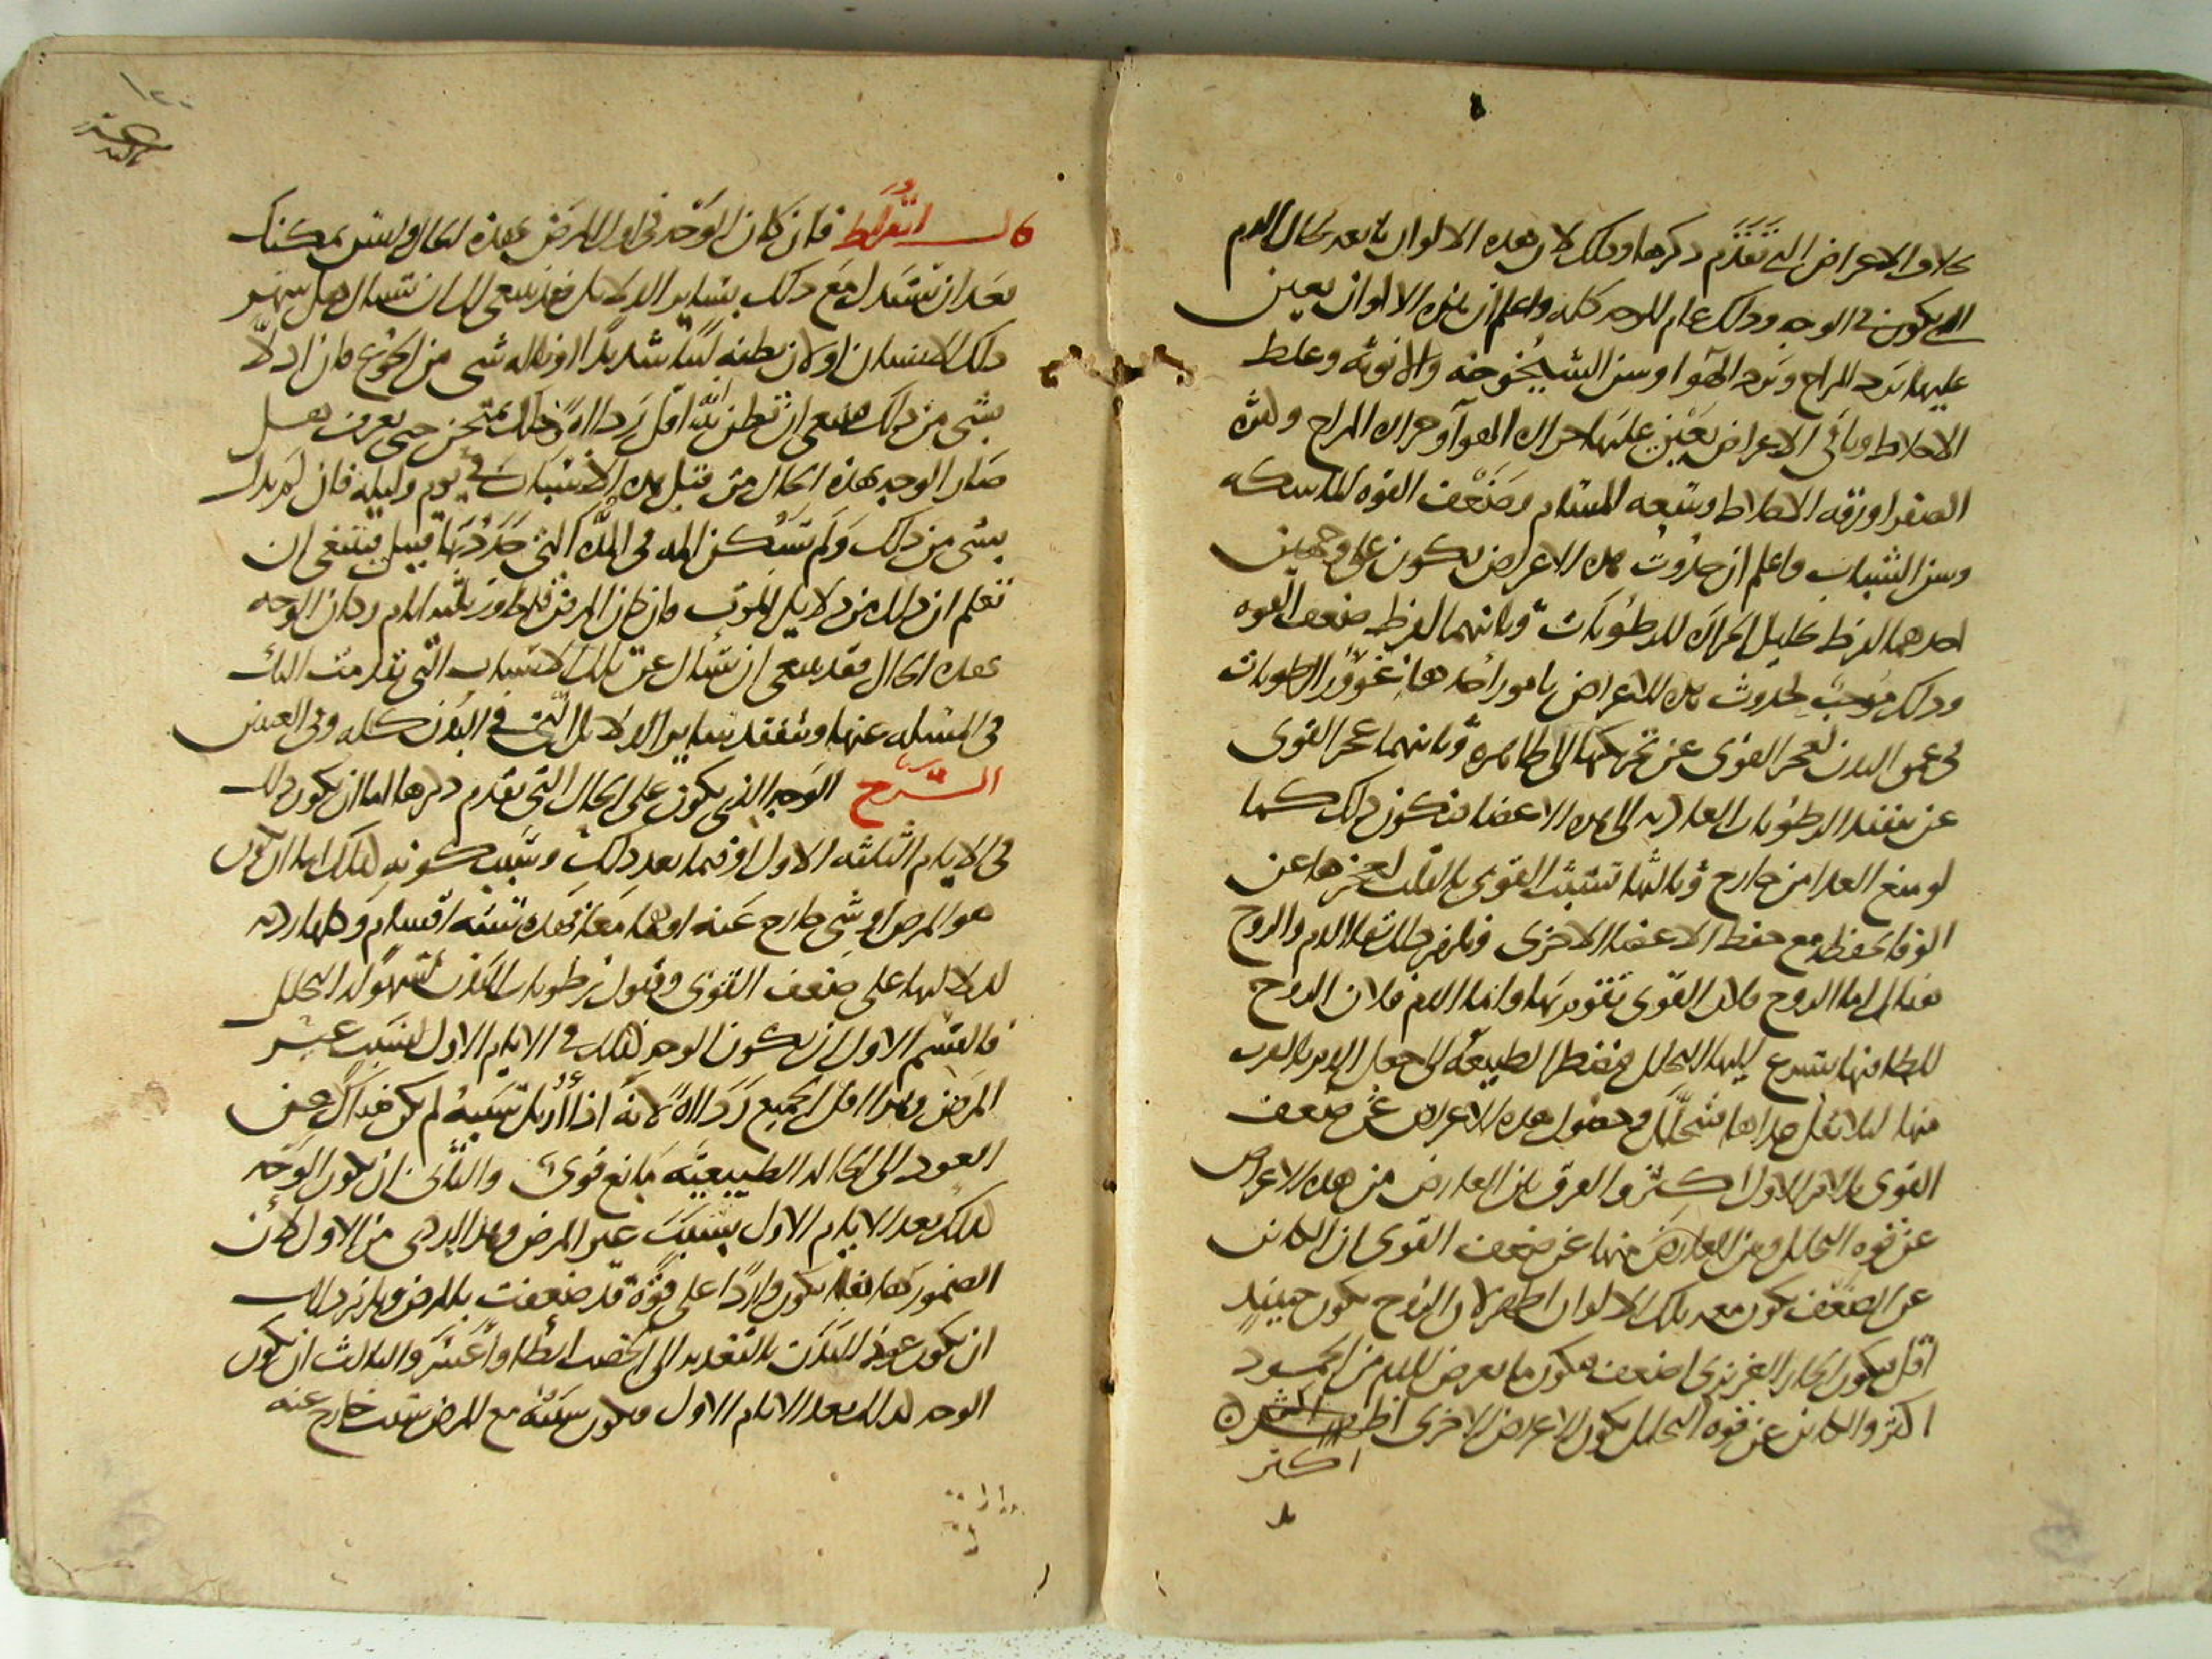 بخلاف الاعراض التي تقدم ذكرها وذلك لان هذه الالوان تابعه لحال الدم
الذي يكون في الوجه وذلك عام للوجه كله واعلم ان هذه الالوان يعين
عليها برد المزاج وبرد الهوا وسن الشيخوخه والانوثه وغلظ
الاخلاط وباقي الاعراض يعين عليها حراره الهوآ وحراره المزاج وكثره
الصفرا ورقه الاخلاط وسعه المسام وضعف القوه الماسكه
وسن الشباب واعلم ان حدوث هذه الاعراض يكون على وجهين
احدهما لفرط تحليل الحراره للرطوبات وثانيهما لفرط ضعف القوه
وذلك موجب لحدوث هذه الاعراض بامور احدها غوور الرطوبات
في عمق البدن لعجز القوى عن تحريكها الى ظاهره وثانيهما عجز القوى
عن تنفيذ الرطوبات الغاذيه الى هذه الاعضا فيكون ذلك كما
لو منع الغذا من خارج وثالثها تشبث القوى بالقلب لعجزها عن
الوفا بحفظه مع حفظ الاعضا الاخرى فيلزم ذلك الدم والروح
اما الروح فلان القوى تقوم بها واما الدم فلان الروح
للطافتها يتسرع اليها التحلل فتضطر الطبيعه الى جعل الدم بالقرب
منها ليلا تقل جدا بما يتحلل وحصول هذه الاعراض عن ضعف
القوى بالامر الاول اكثر والفرق بين العارض من هذه الاعراض
عن قوه التحليل وبين العارض منها عن ضعف القوى ان الكاين
عن الضعف يكون معه تلك الالوان اظهر لان الروح يكون حينيذ
اقل فيكون الحار الغريزي اضعف فيكون ما يعرض للدم من الجمود
اكثر والكاين عن قوه التحليل يكون الاعراض الاخرى اظهر
اكثر
قال ابقراط فان كان الوجه في اول المرض بهذه الحال وليس يمكنك
بعد ان تستدل مع ذلك بساير الدلايل فقد ينبغي لك ان تسال هل سهر
ذلك الانسان او لان بطنه لينا شديدا او ناله شي من الجوع فان اقر لك
بشي من ذلك فينبغي ان تظن انه اقل رداءة وذلك يمتحن حتى يعرف هل
صار الوجه بهذه الحال من قبل هذه الاسباب في يوم وليله فان لم يدل
بشي من ذلك ولم تسكن المه في المده التي حددتها قبل فينبغي ان
تعلم ان ذلك من دلايل الموت وان كان المرض قد جاوز ثلثه ايام وكان الوجه
بهذه الحال فقد ينبغي ان تسأل عن تلك الاسباب التي تقدمت اليك
في المسله عنها وتتفقد ساير الدلايل التي في البدن كله وفي العينين
الشرح الوجه الذي يكون على الحال التي تقدم ذكرها اما ان يكون ذلك
في الايام الثلثه الاول او فيما بعد ذلك وسبب كونه كذلك اما ان يكون
هو المرض او شي خارج عنه او هما معا فهذه سته اقسام وكلها رديه
لدلالتها على ضعف القوى وقبول رطوبات البدن لسهوله التحلل
فالقسم الاول ان يكون الوجه كذلك في الايام الاول بسبب غير
المرض وهذا اقل الجميع رداءة لانه اذا ازيل سببه لم يكن هناك عن
العود الى الحاله الطبيعيه مانع قوى والثاني ان يكون الوجه
كذلك بعد الايام الاول بسبب غير المرض وهذا اردى من الاول لان
الضمور هاهنا يكون واردا على قوة قد ضعفت بالمرض ويلزم ذلك
ان يكون عود البدن بالتغذيه الى الخصب ابطا واعسر والثالث ان يكون
الوجه كذلك بعد الايام الاول ويكون سببه مع المرض سبب خارج عنه